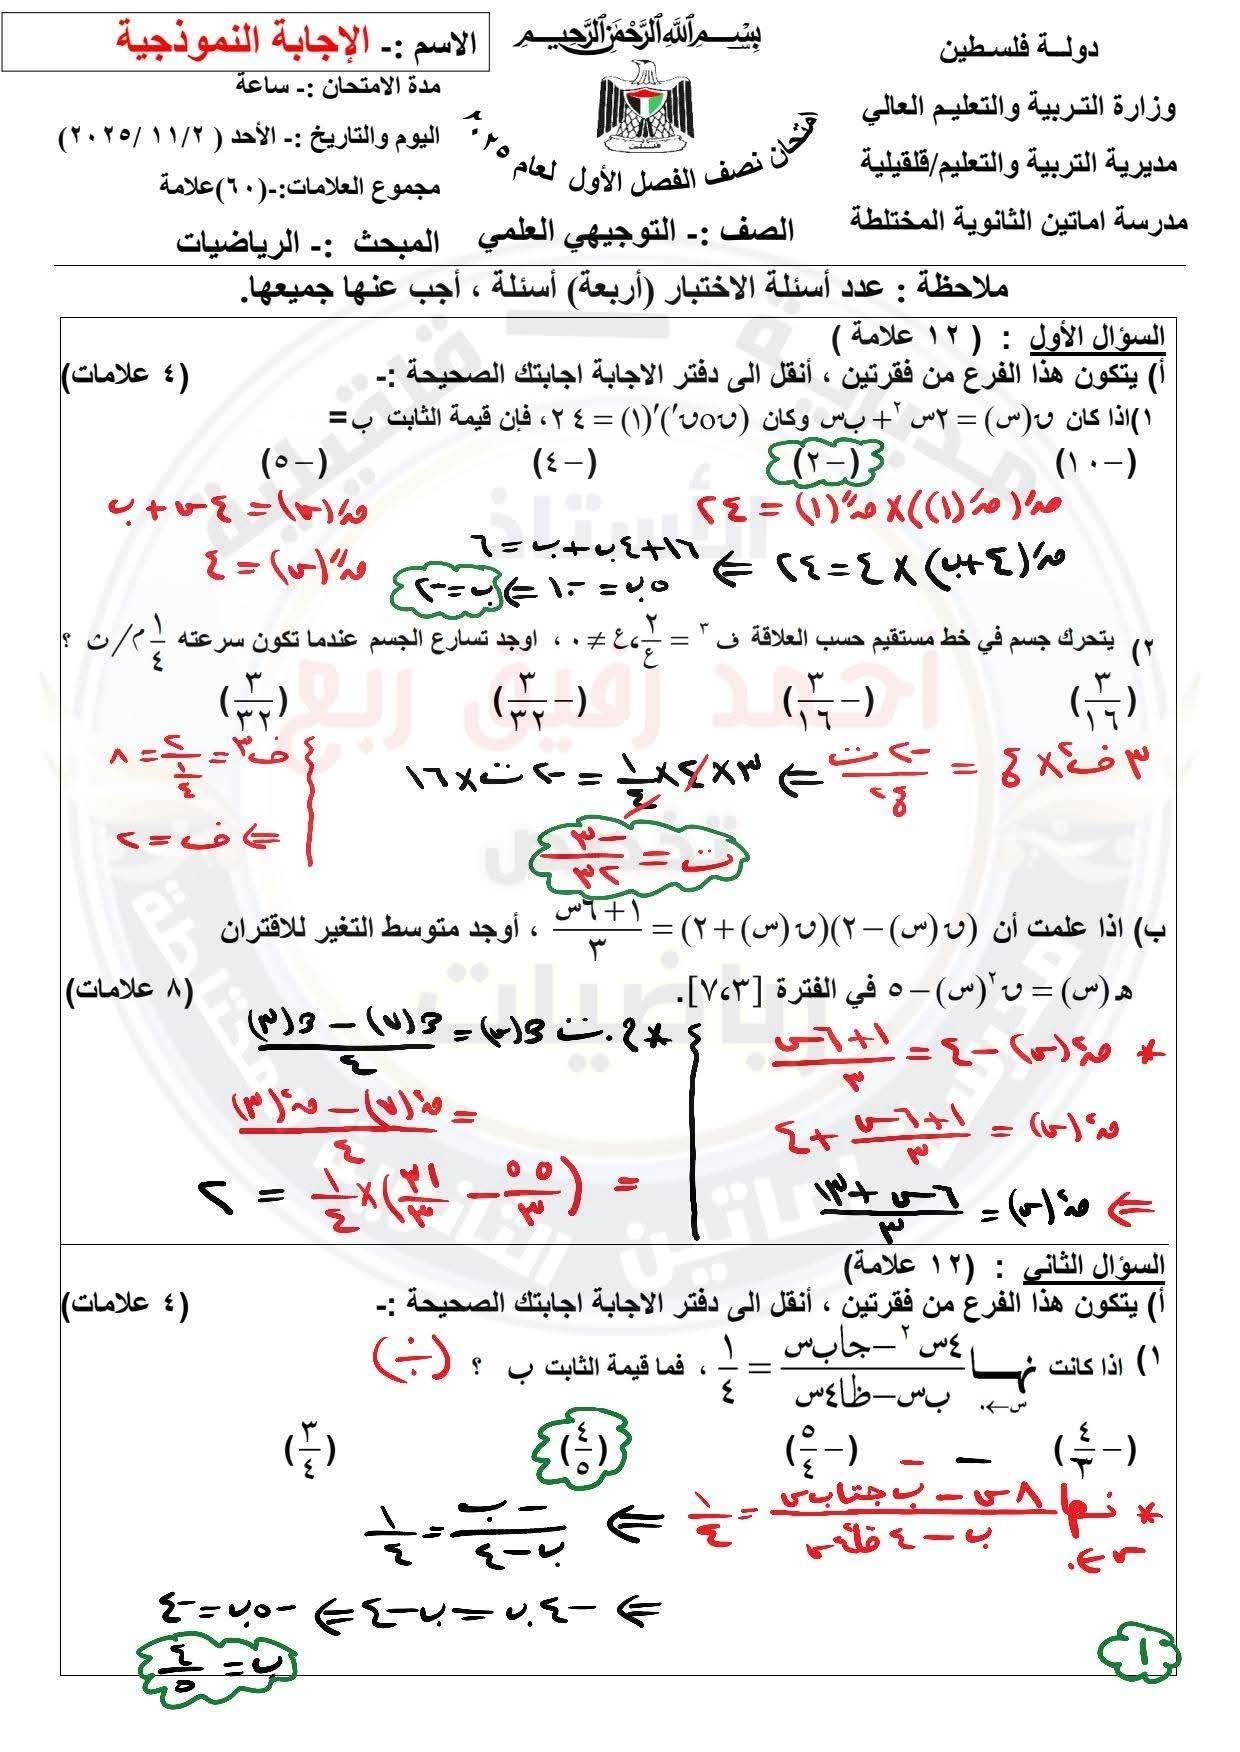 دولـة فلسـطين
وزارة التـربية والتعليـم العالي
مديرية التربية والتعليم/قلقيلية
مدرسة اماتين الثانوية المختلطة
بِسْمِ اللَّهِ الرَّحْمَنِ الرَّحِيمِ
فلسطين
امتحان نصف الفصل الأول لعام ٢٠٢٥
الصف :- التوجيهي العلمي
الاسم :- الإجابة النموذجية
مدة الامتحان :- ساعة
اليوم والتاريخ :- الأحد ( ١١/٢ /٢٠٢٥)
مجموع العلامات:-(٦٠)علامة
المبحث :- الرياضيات
ملاحظة : عدد أسئلة الاختبار (أربعة) أسئلة ، أجب عنها جميعها.
السؤال الأول : ( ١٢ علامة )
أ) يتكون هذا الفرع من فقرتين ، أنقل الى دفتر الاجابة اجابتك الصحيحة :- (٤ علامات)
١)اذا كان ق(س) = ٢س٢ + ب س وكان (ق o ق′)′(١) = ٢٤ ، فإن قيمة الثابت ب=
(-١٠) (-٢) (-٤) (-٥)
ق′(ق′(١))×ق″(١) = ٢٤ ق′(س) = ٤س + ب
ق′(٤+ب) × ٤ = ٢٤ ⇐ ١٦+٤ب+ب = ٦ ق″(س) = ٤
٥ب = -١٠ ⇐ ب = -٢
٢) يتحرك جسم في خط مستقيم حسب العلاقة ف٣ = ٢/ع ، ع ≠ ٠ ، اوجد تسارع الجسم عندما تكون سرعته ١/٤ م/ث ؟
(٣/١٦) (-٣/١٦) (-٣/٣٢) (٣/٣٢)
٣ف٢ × ع = -٢ت/ع٢ ⇐ ٣×٤×١/٤ = -٢ت×١٦ ف٣ = ٢/(١/٤) = ٨
ت = -٣/٣٢ ⇐ ف = ٢
ب) اذا علمت أن (ق(س)-٢)(ق(س)+٢) = (١+٦س)/٣ ، أوجد متوسط التغير للاقتران
هـ(س) = ق٢(س) - ٥ في الفترة [٧،٣]. (٨ علامات)
* ق٢(س) - ٤ = (١+٦س)/٣ * م.ت هـ(س) = (هـ(٧) - هـ(٣))/٤
ق٢(س) = (١+٦س)/٣ + ٤ = (ق٢(٧) - ق٢(٣))/٤
⇐ ق٢(س) = (٦س + ١٣)/٣ = (٥٥/٣ - ٣١/٣) × ١/٤ = ٢
السؤال الثاني : (١٢ علامة)
أ) يتكون هذا الفرع من فقرتين ، أنقل الى دفتر الاجابة اجابتك الصحيحة :- (٤ علامات)
١) اذا كانت نهـــا س←٠ (٤س٢ - جاب س)/(ب س - ظا٤س) = ١/٤ ، فما قيمة الثابت ب ؟ (÷)
(-٤/٣) (-٥/٤) (٤/٥) (٣/٤)
* نها س←٠ (٨س - ب جتاب س)/(ب - ٤ قا٢ ٤س) = ١/٤ ⇐ -ب/(ب-٤) = ١/٤
⇐ -٤ب = ب - ٤ ⇐ -٥ب = -٤
ب = ٤/٥
١
الأستاذ
احمد رفيق ربع
تخصص
رياضيات